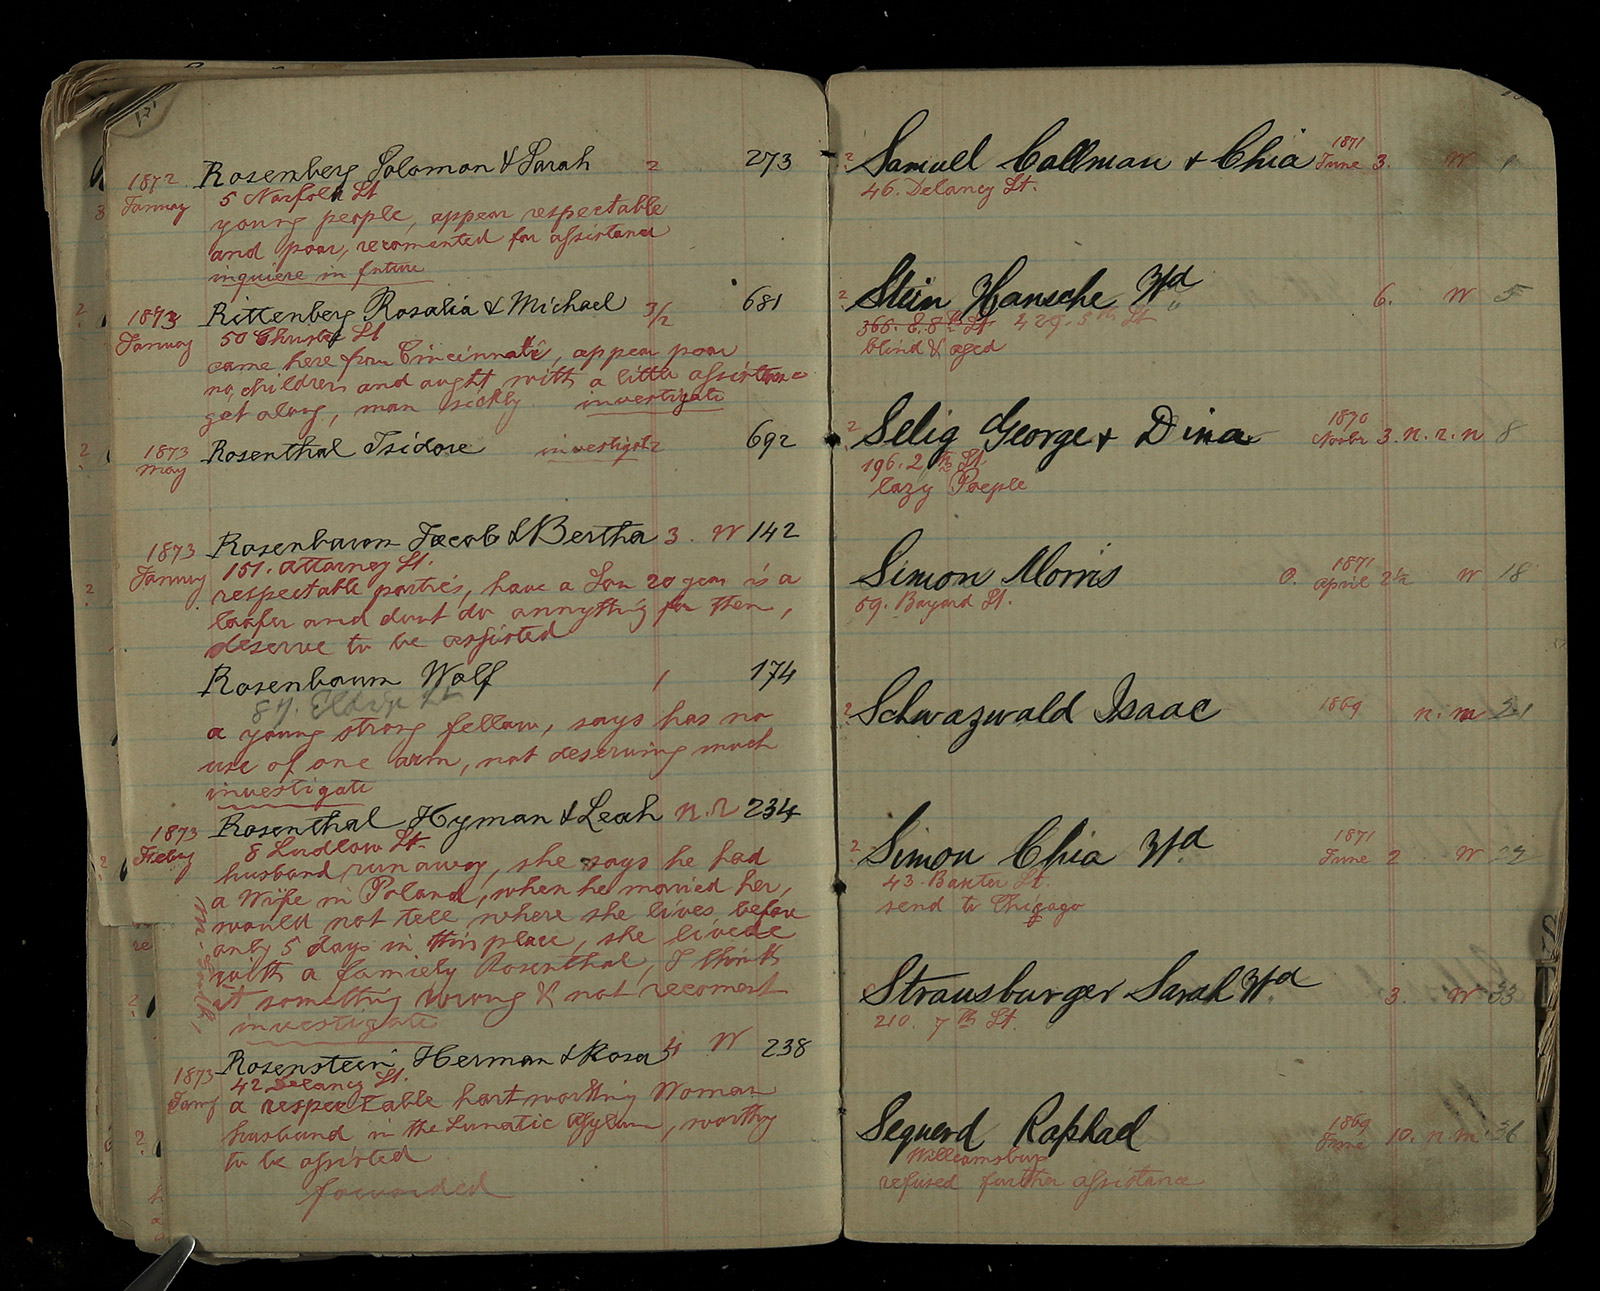 1872 Rosenberg Solomon & Sarah 2 273
January 5 Norfolk St
young people, appear respectable
and poor, recomented for assistance
inquiere in future
1873 Rittenberg Rosalia & Michael 3/2 681
January 50 Christe St
came here from Cincinnati, appear poor
no children and aught with a little assistance
get along, man sickly investigate
1873 Rosenthal Isidore investigate 692
May
1873 Rosenbaum Jacob & Bertha 3. W 142
January 151. Attorney St.
respectable parties, have a Son 20 year is a
loafer and dont do annything for them,
deserve to be assisted
Rosenbaum Wolf 1 174
87. Eldrige St
a young strong fellow, says has no
use of one arm, not deserving much
investigate
1873 Rosenthal Hyman & Leah n. R 234
8 Ludlow St.
husband run away, she says he had
a Wife in Poland, when he married her,
would not tell where she lives before
only 5 days in this place, she livede
with a famiely Rosenthal, I think
it something wrong & not recoment
investigate
Rosenstein Herman & Rosa 4 W 238
1873 42 Delancy St.
a respectable hartworking Woman
husband in the Lunatic Asylum, worthy
to be assisted
forwarded
2 Samuel Callman & Chia 1871 June 3. W 1
46. Delancy St.
2 Stein Hansche Wd 6. W 5
366. E. 8th St. 429. 5th St
blind & aged
2 Selig George & Dina 1870 Novbr 3. n. r. n 8
196. 2th St.
lazy Poeple
Simon Morris O. 1871 April 2 1/2 W 18
59. Bayard St.
2 Schwazwald Isaac 1869 n. m 21
2 Simon Chia Wd 1871 June 2 W 29
43. Baxter St.
send to Chicago
Strausburger Sarah Wd 3. W 33
210. 7th St.
Seguerd Raphael 1869 June 10. n. m. 36
Williamsburg
refused further assistance
S
T